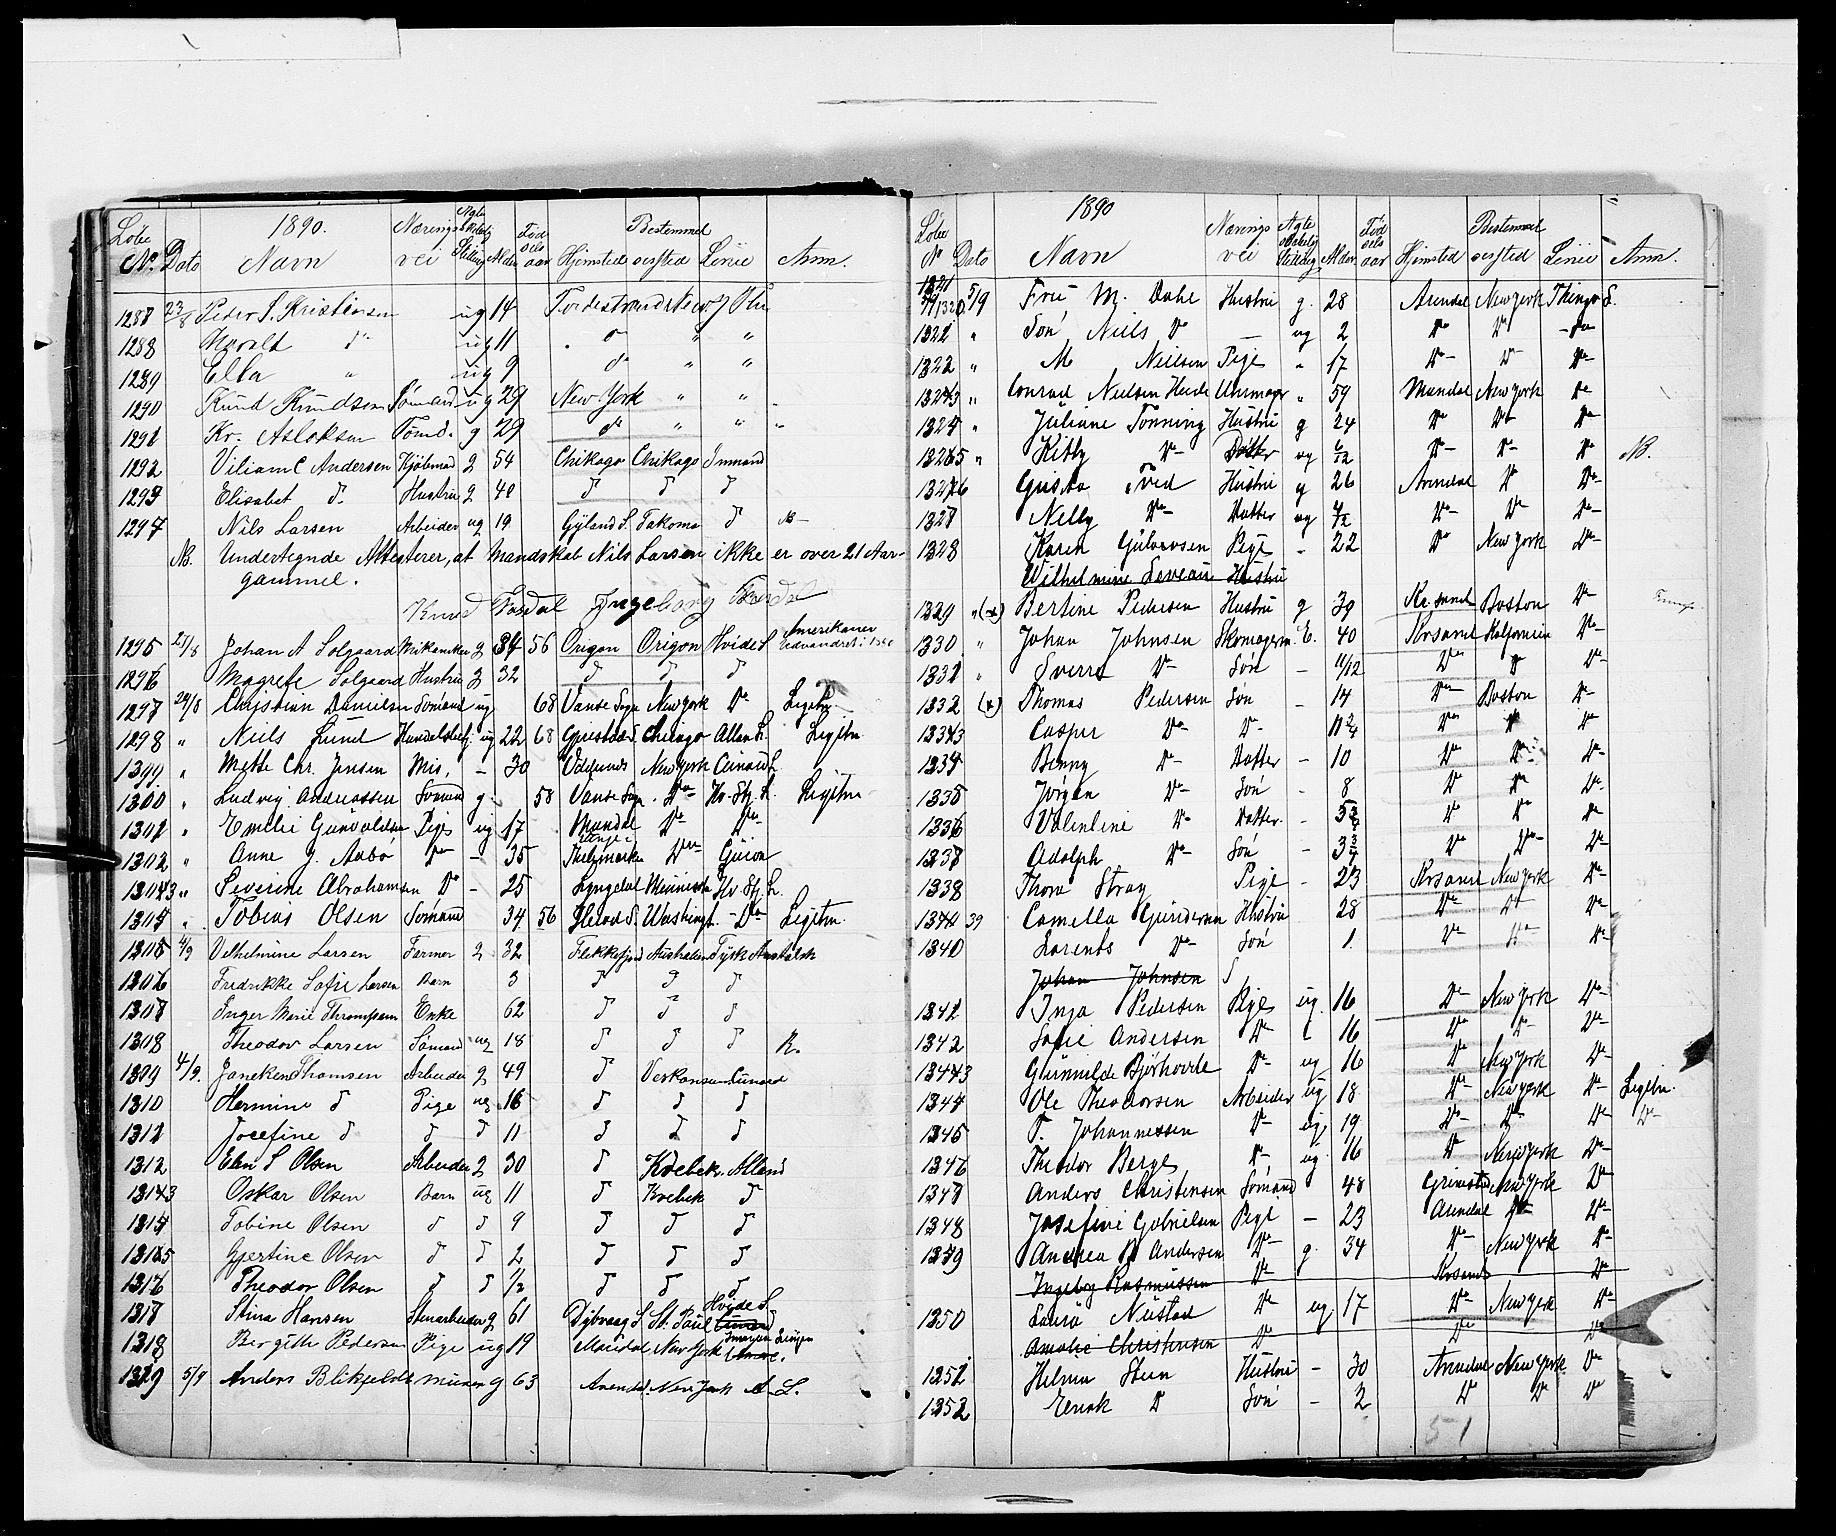 1890.
Løbe No. Dato Navn Nærings vei Ægte skabelig Stilling Alder Fød sels aar Hjemsted Bestemmel sessted Linie Anm.
1287 23/8 Peder S. Kristensen ug 14
1288 Harald do ug 11 do " "
1289 Ella " ug 9 do " "
1290 Knud Knudsen Sømand ug 29 New York " "
1291 Kr. Aslaksen Tømd. g 29 do " " "
1292 Viliam C Andersen Kjøbmad g 54 Chikago Chikago Inmand
1293 Elisabet d. Hustru g 40 d d d
1294 Nils Larsen Arbeider ug 19 Gyland S. Takoma d NB
NB. Undertegnde Attesterer, at Mandskab Nils Larsen ikke er over 21 Aar
gammel.
Knud Fosdal Ingeborg Fosdal
1295 25/8 Johan A Solgaard Mekaniker g 34 56 Origon Origon Hvide S. Amerikaner Udvandret i 1880
1296 Magrete Solgaard Hustru g 32 d d d
1297 28/8 Christian Danielsen Sømand ug 68 Vanse Sogn New York Do Legitm
1298 " Niels Lund Handelsbetj. ug 22 68 Chicago Allan L. Legitm
1399 " Mette Chr. Jensen Mis, - 30 New York Cunard L
1300 " Ludvig Andreassen Sømand g. 58 Vanse Sogn Do Hv. Stj. L. Legitm
1301 " Emelie Gunvaldsen Pige ug 17 Mandal Do Do
1302 " Anne G. Aabø Do - 35 Do Guion
1303 " Severine Abrahamsen Do - 25 Lyngdal Minnesota Hv. Stj. L.
1304 " Tobias Olsen Sømand 34 56 Washingt. Do Legitm
1305 4/9 Vilhelmine Larsen Farmer g 32 Flekkefjord Australien Tysk Australsk
1306 Fredrikke Sofie Larsen Barn 3 d d d
1307 Inger Marie Thrompsen Enke 62 d d d
1308 Theodor Larsen Sømand ug 18 d d d R.
1309 4/9. Janeken Thomsen Arbeider g 49 d Veskonsen Cunard
1310 Hermine d Pige ug 16 d d d
1311 Josefine d d d 11 d d d
1312 Elen S Olsen Arbeider g 30 d Kvebek Alland
1313 Oskar Olsen Barn ug 11 d Kvebek d
1314 Tobine Olsen d d 9 d d d
1315 Gjertine Olsen d d 2 d d d
1316 Theodor Olsen d d 1/2 d d d
1317 Stina Hansen Stenarbeider g 61 Dybvaag S St. Paul Hvide S.
1318 Bergitte Pedersen Pige ug 19 Mandal New York
1319 5/9 Anders Blikfeldt murer g 63 Arendal New York A L.
1890
Løbe No Dato Navn Nærings vei Ægte skabelig Stilling Alder Fød sels aar Hjemsted Bestemmel sessted Linie Anm.
1321
1320 5/9 Fru M. Dahl Hustru g. 28 Arendal New York Thingv. L.
1322 " Søn Niels Do - ug 2 Do Do Do
1322 " M Nielsen Pige " 17 Do Do Do
1323 " Conrad Nielsen Heide Uhrmager " 59 Mandal New York Do
1324 " Juliane Tønning Hustru g 24 Do Do Do
1325 " Kitty Do Datter ug 6/12 Do Do Do NB.
1326 Gusta Tved Hustru g 26 Arendal Do Do
1327 Nelly Do Datter ug Do Do Do
1328 Karen Gulovsen Pige - 22 Do New York Do
Wilhelmine Leveau Hustru
1329 " (x) Bertine Pedersen Hustru g 39 Kr.sand Boston Do
1330 " Johan Johnsen Skomagerm. E. 40 Krsand Kalfornien Do
1331 " Sverre Do Søn - 11/12 Do Do Do
1332 (x) Thomas Pedersen Søn - 14 Do Boston Do
1333 Casper Do Do 11 3/4 Do Do Do
1334 Benny Do Datter - 10 Do Do Do
1335 Jørgen Do Søn - 8 Do Do Do
1336 Valentine Do Datter - Do Do Do
1337 Adolph Do Søn - Do Do Do
1338 Thora Stray Pige - 23 Krsand New York Do
39 Camella Gundersen Hustru 28 Do Do Do
1340 Lorents Do Søn 1. Do Do Do
Johan Johnsen S
1341 Inga Pedersen Pige ug. 16 Do New York Do
1342 Sofie Andersen Do 16 Do Do Do
1343 Gunnilde Bjørhovde Do ug 16 Do New York Do
1344 Ole Theodorsen Arbeider ug 18 Do New York Do Legitm.
1345 T. Johannessen Do ug 19 Do Do Do Do
1346 Theodor Berge Do ug 16 Do New York Do
1347 Anders Christensen Sømand 48 Grimstad New York Do
1348 Josefine Gabrielsen Pige - 23 Arendal Do Do
1349 Andrea B Andersen Do g. 34 Do New York Do
Ingeborg Rasmussen Do Krsand Do
1350 Laura Neustad Do ug. 17 Do New York Do
Amalie Christensen Do Do Do
1351 Helma Steen Hustru - 30 Arendal New York Do
1352 Enok Do Søn - 2 Do Do Do
51